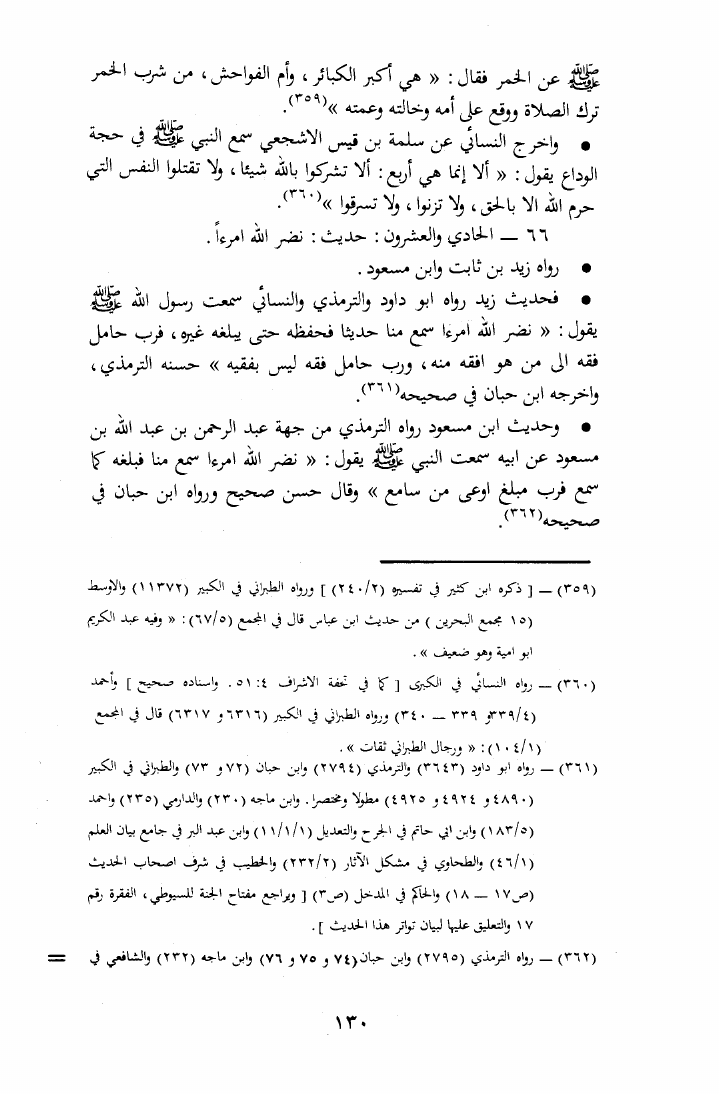 ﷺ عن الخمر فقال : « هي أكبر الكبائر ، وأم الفواحش ، من شرب الخمر
ترك الصلاة ووقع على أمه وخالته وعمته »(٣٥٩).
● واخرج النسائي عن سلمة بن قيس الاشجعي سمع النبي ﷺ في حجة
الوداع يقول : « ألا إنما هي أربع : ألا تشركوا بالله شيئا ، ولا تقتلوا النفس التي
حرم الله الا بالحق ، ولا تزنوا ، ولا تسرقوا »(٣٦٠).
٦٦ — الحادي والعشرون : حديث : نضر الله امرءاً .
● رواه زيد بن ثابت وابن مسعود .
● فحديث زيد رواه ابو داود والترمذي والنسائي سمعت رسول الله ﷺ
يقول : « نضر الله امرءا سمع منا حديثا فحفظه حتى يبلغه غيره ، فرب حامل
فقه الى من هو افقه منه ، ورب حامل فقه ليس بفقيه » حسنه الترمذي ،
واخرجه ابن حبان في صحيحه(٣٦١).
● وحديث ابن مسعود رواه الترمذي من جهة عبد الرحمن بن عبد الله بن
مسعود عن ابيه سمعت النبي ﷺ يقول : « نضر الله امرءا سمع منا فبلغه كما
سمع فرب مبلغ اوعى من سامع » وقال حسن صحيح ورواه ابن حبان في
صحيحه(٣٦٢).
(٣٥٩) — [ ذكره ابن كثير في تفسيره (٢٤٠/٢) ] ورواه الطبراني في الكبير (١١٣٧٢) والاوسط
(١٥ مجمع البحرين ) من حديث ابن عباس قال في المجمع (٦٧/٥) : « وفيه عبد الكريم
ابو امية وهو ضعيف » .
(٣٦٠) — رواه النسائي في الكبرى [ كما في تحفة الاشراف ٤ : ٥١ . واسناده صحيح ] وأحمد
(٣٣٩/٤ و ٣٣٩ — ٣٤٠) ورواه الطبراني في الكبير (٦٣١٦ و ٦٣١٧) قال في المجمع
(١٠٤/١) : « ورجال الطبراني ثقات » .
(٣٦١) — رواه ابو داود (٣٦٤٣) والترمذي (٢٧٩٤) وابن حبان (٧٢ و ٧٣) والطبراني في الكبير
(٤٨٩٠ و ٤٩٢٤ و ٤٩٢٥) مطولا ومختصرا . وابن ماجه (٢٣٠) والدارمي (٢٣٥) واحمد
(١٨٣/٥) وابن ابي حاتم في الجرح والتعديل (١١/١/١) وابن عبد البر في جامع بيان العلم
(٤٦/١) والطحاوي في مشكل الآثار (٢٣٢/٢) والخطيب في شرف اصحاب الحديث
(ص١٧ — ١٨) والحاكم في المدخل (ص٣) [ ويراجع مفتاح الجنة للسيوطي ، الفقرة رقم
١٧ والتعليق عليها لبيان تواتر هذا الحديث ] .
(٣٦٢) — رواه الترمذي (٢٧٩٥) وابن حبان (٧٤ و ٧٥ و ٧٦) وابن ماجه (٢٣٢) والشافعي في =
١٣٠